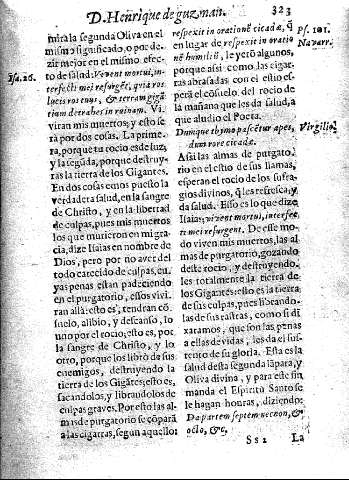 D. Henrique de guzman. 323
mura la segunda Oliva en el
mismo significado, o por dezir
mejor en el mismo efecto
de salud: Vivent mortui, interfecti
Isa. 26.
mei resurgēt, quia ros
lucis ros tuus, & terram gigātium
detrahes in ruinam. Vivirān
mis muertos; y esto será
por dos cosas. La primera,
porque tu rocio es de luz,
y la segūda, porque destruyras
la tierra de los Gigantes.
En dos cosas emos puesto la
verdadera salud, en la sangre
de Christo, y en la libertad
de culpas, pues mis muertos
los que murieron en mi gracia,
dize Isaias en nombre de
Dios, pero por no aver del
todo carecido de culpas, cuyas
penas estan padeciendo
en el purgatorio, essos viviran
allà: esto es, tendran cōsuelo,
alibio, y descanso, lo
uno por el rocio; esto es, por
la sangre de Christo, y lo
otro, porque los librò de sus
enemigos, destruyendo la
tierra de los Gigātes; esto es,
sacandolos, y librandolos de
culpas graves. Por esto las almas
de purgatorio se cōparā
a las cigarras, segun aquello:
respexit in orationē cicadæ,
Ps. 101.
en lugar de respexit in orationē
Navarr.
humiliū, le yerò algunos,
porque assi como las cigarras
abrasadas con el estio esperā
el cōsuelo del rocio de
la mañana que les dà salud, a
que aludio el Poeta.
Dumque thymo pascētur apes,
Virgilio.
dum rore cicadæ.
Assi las almas de purgatorio
en el estio de sus llamas,
esperan el rocio de los sufragios
divinos, q̄ les refresca, y
dà salud. Esso es lo que dize
Isaias; vivent mortui, interfecti
mei resurgent. De esse modo
viven mis muertos, las almas
de purgatorio, gozando
deste rocio, y destruyendoles
totalmente la tierra de
los Gigantes: esto es la tierra
de sus culpas, pues librandolas
de sus rastras, como si dixaramos,
que son las penas
a ellas devidas, les da el sustento
de su gloria. Esta es la
salud desta segunda lāpara, y
Oliva divina, y para este fin
manda el Espiritu Santo se
le hagan honras, diziendo:
Da partem septem necnon, &
octo, &c.
Ss 2 La